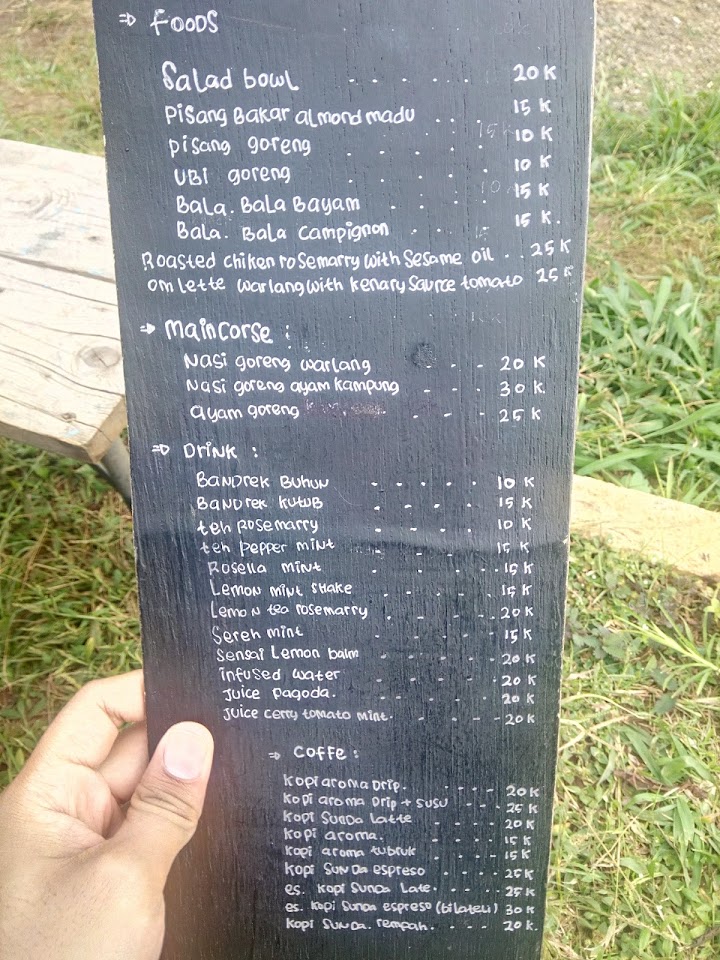 ⇒ FOODS
Salad bowl . . . . . . 20 K
Pisang Bakar almond madu . . . 15 K
Pisang goreng . . . . . 10 K
UBI goreng . . . . . 10 K
Bala. Bala Bayam . . . . 15 K
Bala. Bala Campignon . . . 15 K.
Roasted chiken rosemarry with Sesame oil . . 25 K
omlette warlang with kenary Saurce tomato 25 K
⇒ maincorse :
Nasi goreng warlang . . . 20 K
Nasi goreng ayam kampung - - - 30 K.
ayam goreng - - - 25 K
⇒ DRINK :
BANDREK BUHUN . . . . . 10 K
BANDREK KUTUB . . . . . 15 K
teh Rosemarry - - - - - 10 K
teh pepper mint . . . . . 15 K
Rosella mint . . . . . 15 K
Lemon mint shake . . . . . 15 K
Lemon tea rosemarry . . . . . 20 K
Sereh mint . . . . . 15 K
Sensai Lemon balm . . . . . 20 K
infused water - - - - - 20 K
Juice Pagoda. - - - - - 20 K
Juice cerry tomato mint. - - - - 20 K
⇒ COFFE :
Kopi aroma Drip. . . . . 20 K
Kopi aroma Drip + susu - - - 25 K
Kopi Sunda Latte . . . . 20 K
Kopi aroma. . . . . 15 K
Kopi aroma tubruk - - - - 15 K
Kopi SUNDA espreso . . . . 25 K
es. Kopi Sunda Late. - - - 25 K
es. Kopi Sunda espreso (bilateli) 30 K
Kopi SUNDA. rempah. . - - - 20 K.